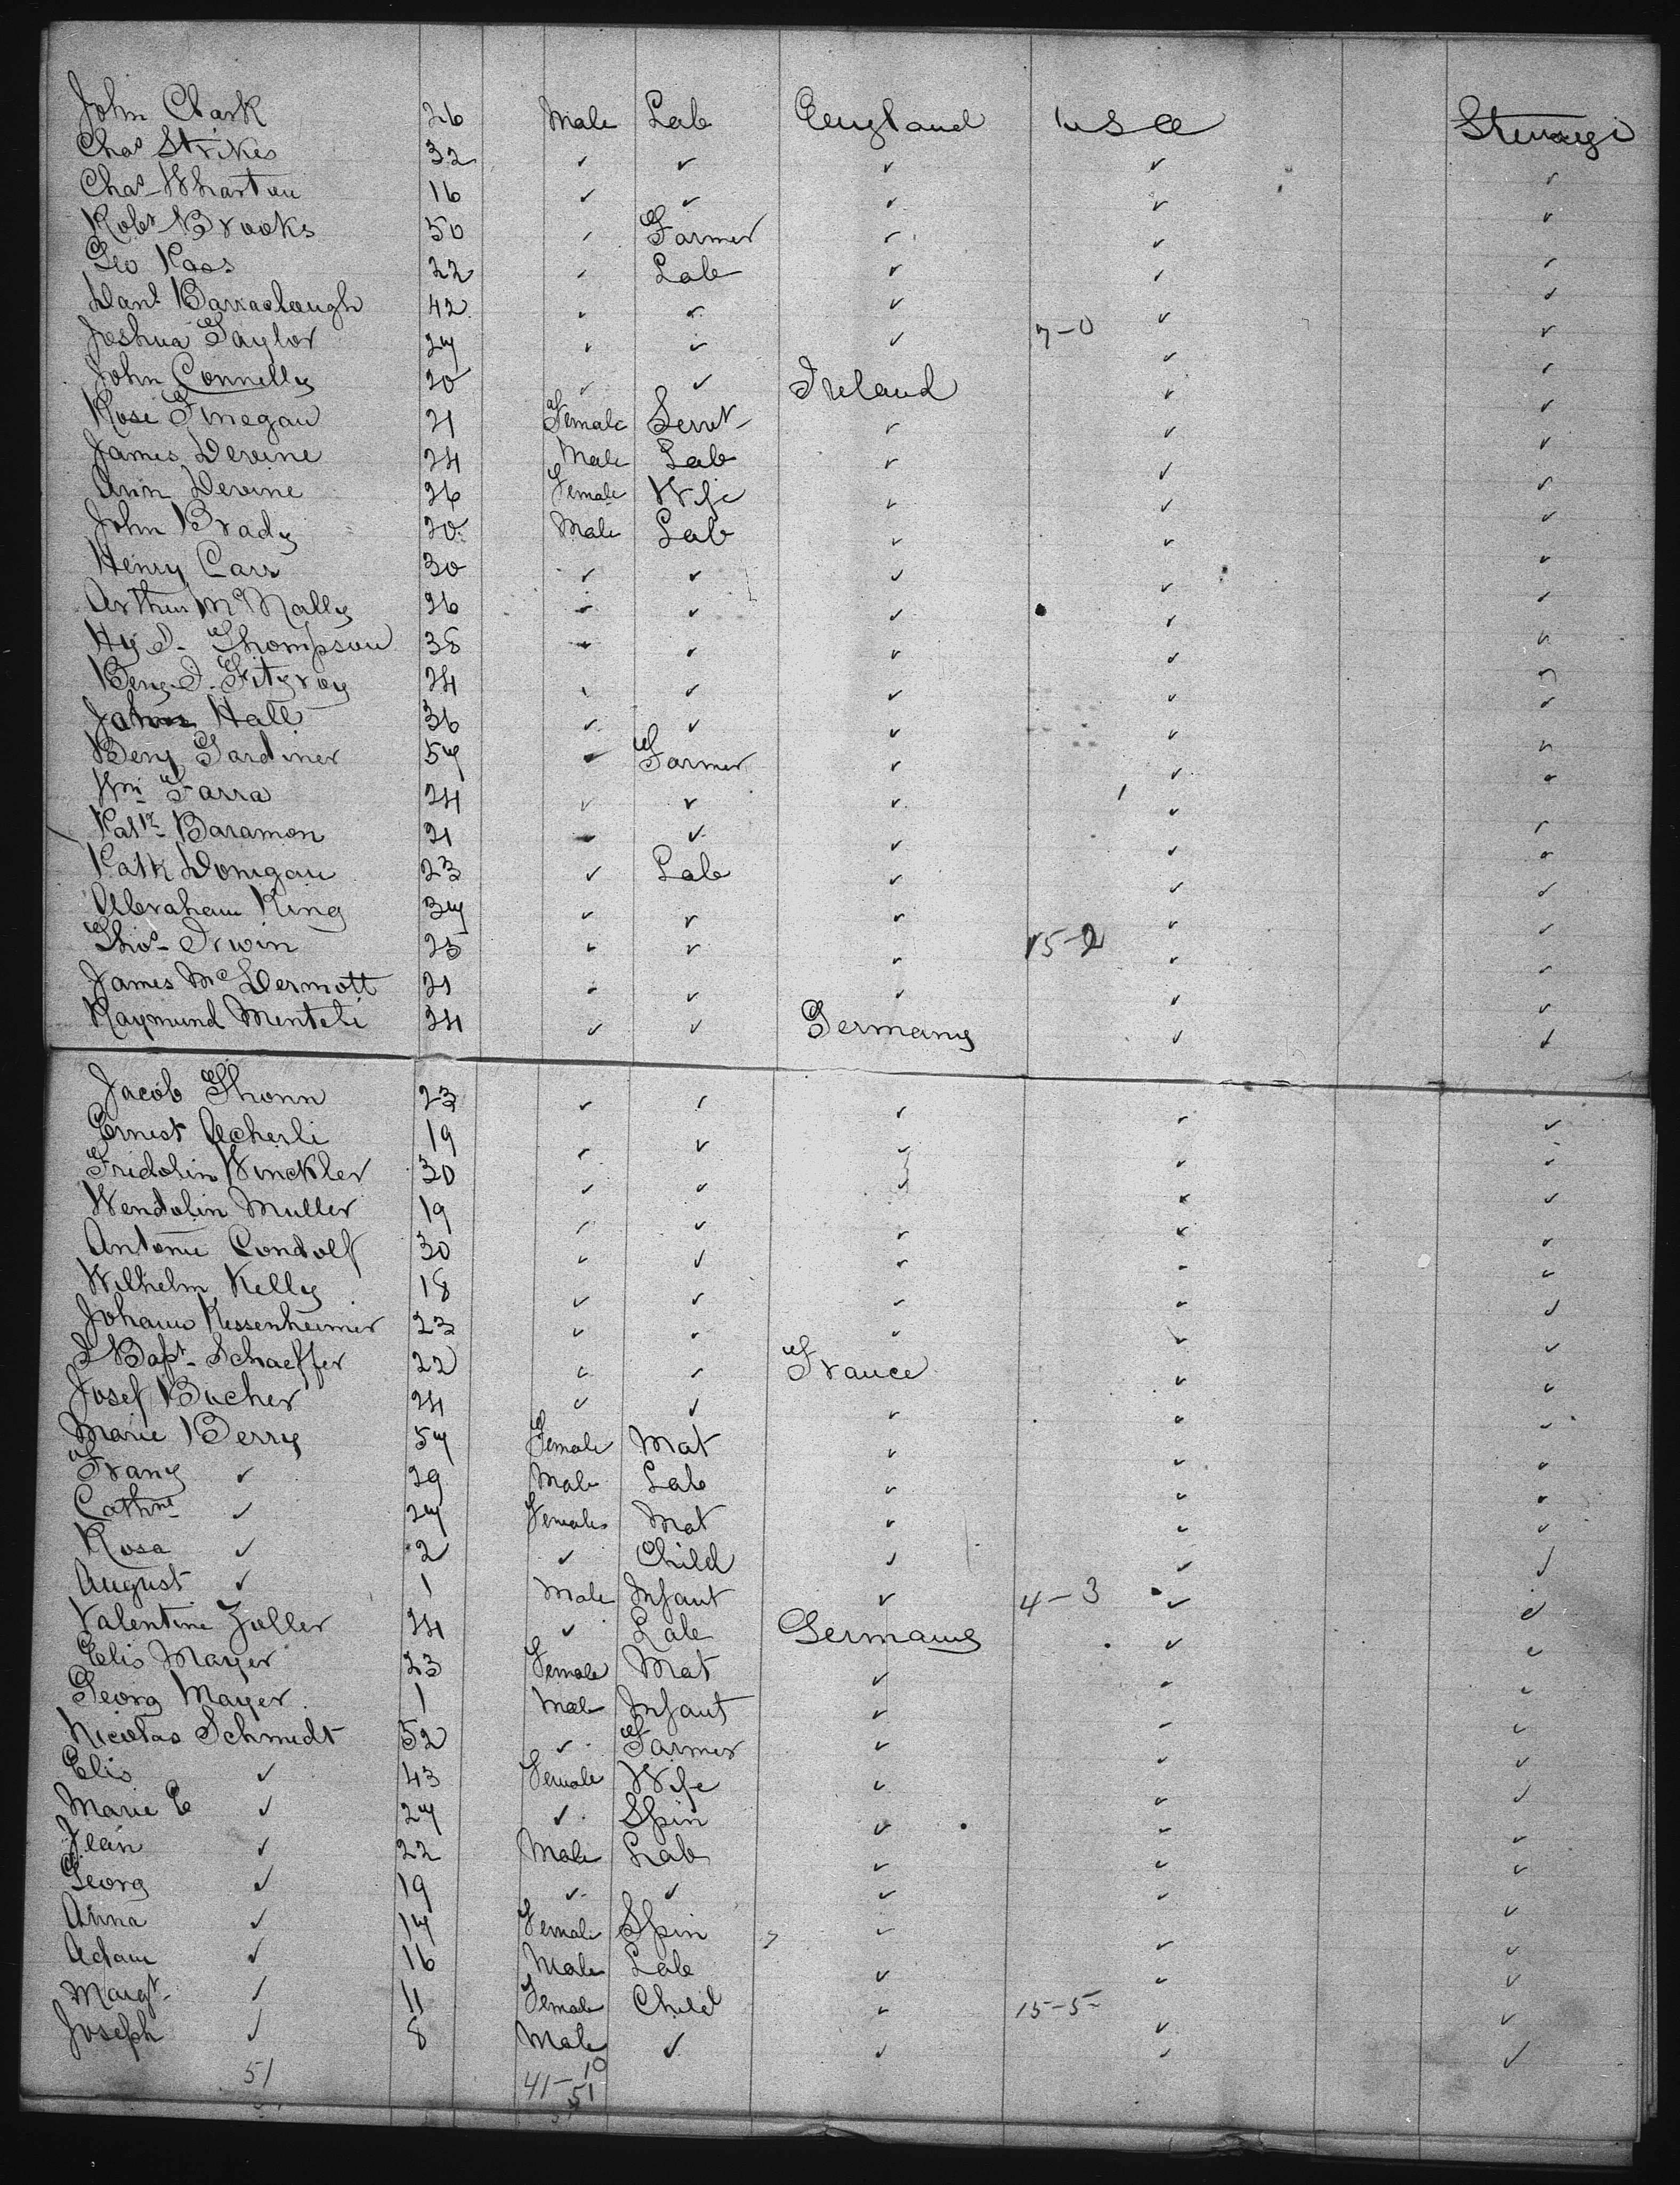 John Clark 26 Male Lab England USA Steerage
Chas Strikes 32 ✓ ✓ ✓ ✓ ✓
Chas Wharton 16 ✓ ✓ ✓ ✓ ✓
Robt Brooks 50 ✓ Farmer ✓ ✓ ✓
Geo 22 ✓ Lab ✓ ✓ ✓
Danl Barraclough 42 ✓ ✓ ✓ ✓ ✓
Joshua Taylor 27 ✓ ✓ ✓ 7-0 ✓ ✓
John Connelly 20 ✓ ✓ Ireland ✓ ✓
Rose Finegan 21 Female Servt ✓ ✓ ✓
James Devine 24 Male Lab ✓ ✓ ✓
Ann Devine 26 Female Wife ✓ ✓ ✓
John Brady 20 Male Lab ✓ ✓ ✓
Henry Carr 30 ✓ ✓ ✓ ✓ ✓
Arthur McNally 26 ✓ ✓ ✓ ✓ ✓
Hy Thompson 38 ✓ ✓ ✓ ✓ ✓
Benj Fitzroy 24 ✓ ✓ ✓ ✓ ✓
Hall 36 ✓ ✓ ✓ ✓ ✓
Benj Gardiner 57 ✓ Farmer ✓ ✓ ✓
Wm Farra 24 ✓ ✓ ✓ ✓ ✓
Patk Baramon 21 ✓ ✓ ✓ ✓ ✓
Patk Donigan 23 ✓ Lab ✓ ✓ ✓
Abraham King 37 ✓ ✓ ✓ ✓ ✓
Thos Irwin 25 ✓ ✓ ✓ 15-2 ✓ ✓
James McDermott 21 ✓ ✓ ✓ ✓ ✓
Raymund Menteli 24 ✓ ✓ Germany ✓ ✓
Jacob Thonn 23 ✓ ✓ ✓ ✓ ✓
Ernest Acherli 19 ✓ ✓ ✓ ✓ ✓
Fridolin Winckler 30 ✓ ✓ ✓ ✓ ✓
Wendolin Muller 19 ✓ ✓ ✓ ✓ ✓
Antonie Condolf 30 ✓ ✓ ✓ ✓ ✓
Wilhelm Kelly 18 ✓ ✓ ✓ ✓ ✓
Johann Kessenheimer 23 ✓ ✓ ✓ ✓ ✓
J Bapt Schaeffer 22 ✓ ✓ France ✓ ✓
Josef Bucher 24 ✓ ✓ ✓ ✓ ✓
Marie Berry 57 Female Mat ✓ ✓ ✓
Franz ✓ 29 Male Lab ✓ ✓ ✓
Cathne ✓ 27 Female Mat ✓ ✓ ✓
Rosa ✓ 2 ✓ Child ✓ ✓ ✓
August ✓ 1 Male Infant ✓ 4-3 ✓ ✓
Valentine Zoller 24 ✓ Lab Germany ✓ ✓
Elis Mayer 23 Female Mat ✓ ✓ ✓
Georg Mayer 1 Male Infant ✓ ✓ ✓
Nicolas Schmidt 52 ✓ Farmer ✓ ✓ ✓
Elis ✓ 43 Female Wife ✓ ✓ ✓
Marie E ✓ 27 ✓ Spin ✓ ✓ ✓
Jean ✓ 22 Male Lab ✓ ✓ ✓
Georg ✓ 19 ✓ ✓ ✓ ✓ ✓
Anna ✓ 17 Female Spin ✓ ✓ ✓
Adam ✓ 16 Male Lab ✓ ✓ ✓
Margt ✓ 11 Female Child ✓ 15-5 ✓ ✓
Joseph ✓ 8 Male ✓ ✓ ✓ ✓
51 41-10
51